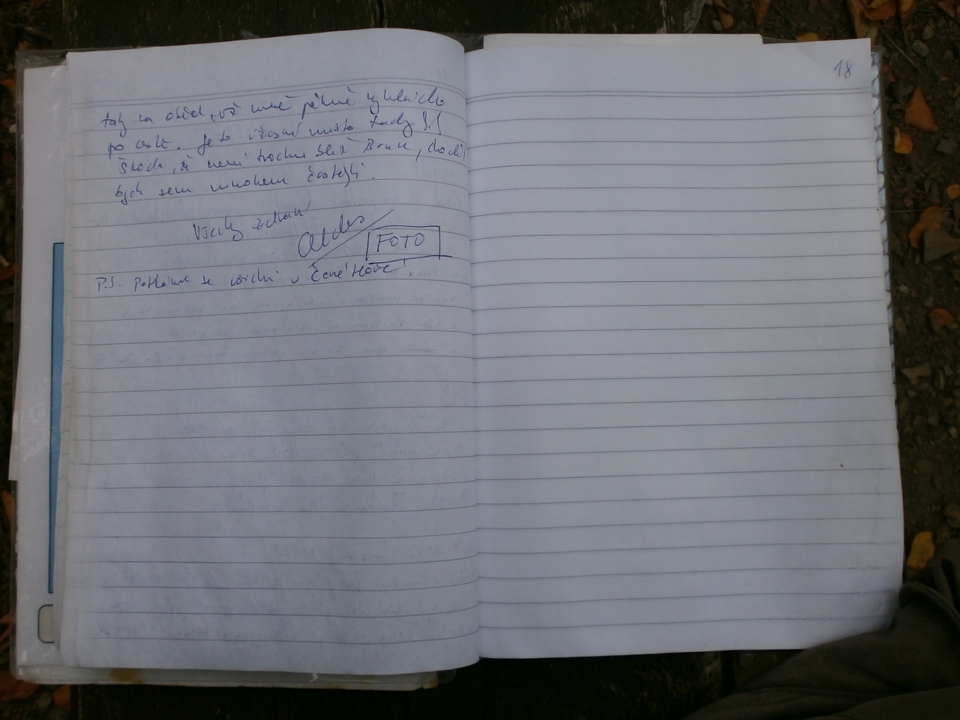 tak na oběd, už mně pěkně vyhládlo
po cestě. Je to úžasné místo tady !!
Škoda, že není trochu blíž Brnu, chodil
bych sem mnohem častěji.
Všechny zdraví
FOTO
P.S. Potkáme se všichni v Černé Hoře!
18